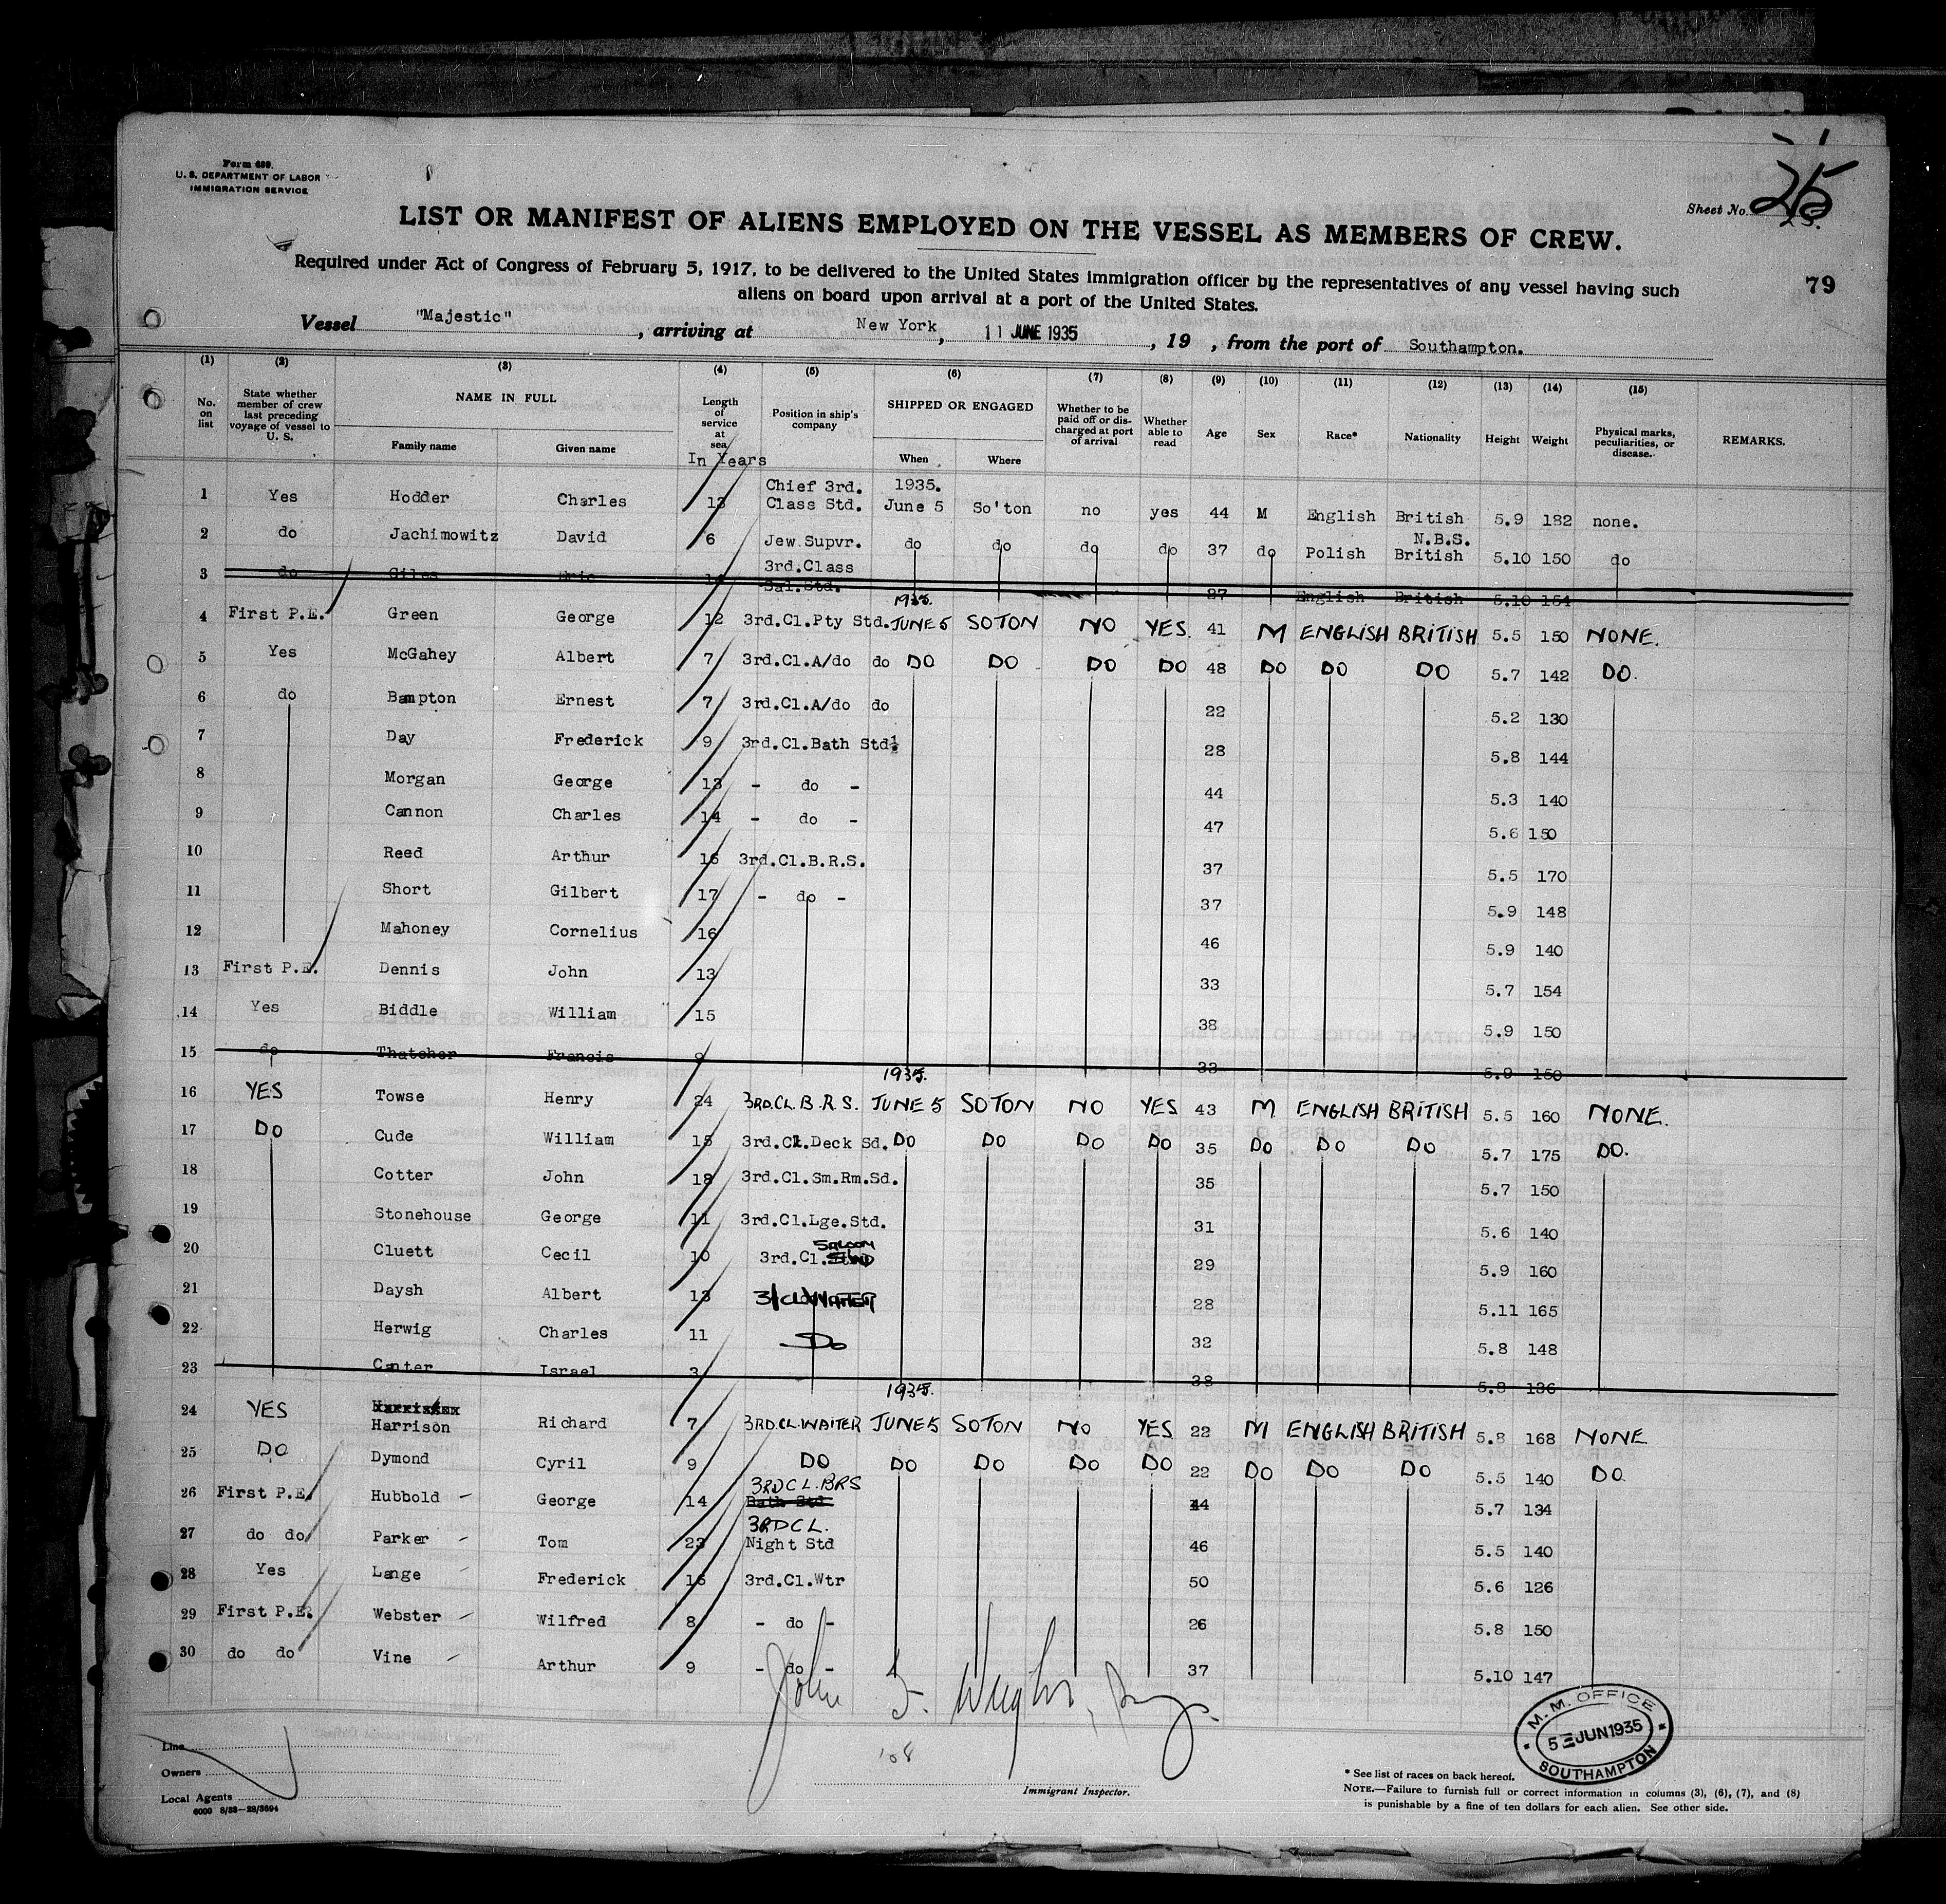 Form 689.
U. S. DEPARTMENT OF LABOR
IMMIGRATION SERVICE
25
Sheet No.
LIST OR MANIFEST OF ALIENS EMPLOYED ON THE VESSEL AS MEMBERS OF CREW.
Required under Act of Congress of February 5, 1917, to be delivered to the United States immigration officer by the representatives of any vessel having such
aliens on board upon arrival at a port of the United States.
79
Vessel "Majestic", arriving at New York, 11 JUNE 1935, 19 , from the port of Southampton.
(1) (2) (3) (4) (5) (6) (7) (8) (9) (10) (11) (12) (13) (14) (15)
No. on list | State whether member of crew last preceding voyage of vessel to U. S. | NAME IN FULL Family name Given name | Length of service at sea In Years | Position in ship's company | SHIPPED OR ENGAGED When Where | Whether to be paid off or discharged at port of arrival | Whether able to read | Age | Sex | Race* | Nationality | Height | Weight | Physical marks, peculiarities, or disease. | REMARKS.
1 Yes Hodder Charles 13 Chief 3rd. Class Std. 1935. June 5 So'ton no yes 44 M English British 5.9 182 none.
2 do Jachimowitz David 6 Jew Supvr. do do do do 37 do Polish N.B.S. British 5.10 150 do
3 do Giles Eric 14 3rd.Class Sal.Std. 27 English British 5.10 154
4 First P.E. Green George 12 3rd.Cl.Pty Std. 1935. JUNE 5 SOTON NO YES 41 M ENGLISH BRITISH 5.5 150 NONE.
5 Yes McGahey Albert 7 3rd.Cl.A/do do DO DO DO DO 48 DO DO DO 5.7 142 DO.
6 do Bampton Ernest 7 3rd.Cl.A/do do 22 5.2 130
7 Day Frederick 9 3rd.Cl.Bath Std. 28 5.8 144
8 Morgan George 13 - do - 44 5.3 140
9 Cannon Charles 14 - do - 47 5.6 150
10 Reed Arthur 16 3rd.Cl.B.R.S. 37 5.5 170
11 Short Gilbert 17 - do - 37 5.9 148
12 Mahoney Cornelius 16 46 5.9 140
13 First P.E. Dennis John 13 33 5.7 154
14 Yes Biddle William 15 38 5.9 150
15 do Thatcher Francis 9 33 5.9 150
16 YES Towse Henry 24 3RD.CL.B.R.S. 1935. JUNE 5 SOTON NO YES 43 M ENGLISH BRITISH 5.5 160 NONE.
17 DO Cude William 15 3rd.Cl.Deck Sd. DO DO DO DO 35 DO DO DO 5.7 175 DO.
18 Cotter John 18 3rd.Cl.Sm.Rm.Sd. 35 5.7 150
19 Stonehouse George 11 3rd.Cl.Lge.Std. 31 5.6 140
20 Cluett Cecil 10 3rd.Cl. SALOON 29 5.9 160
21 Daysh Albert 13 3/CL WAITER 28 5.11 165
22 Herwig Charles 11 Do 32 5.8 148
23 Canter Israel 3 38 5.8 136
24 YES Harrison Richard 7 3RD.CL.WAITER 1935. JUNE 5 SOTON NO YES 22 M ENGLISH BRITISH 5.8 168 NONE
25 DO Dymond Cyril 9 DO DO DO DO DO 22 DO DO DO 5.5 140 DO
26 First P.E. Hubbold George 14 3RD CL.BRS Bath Std 44 5.7 134
27 do do Parker Tom 23 3RD CL. Night Std 46 5.5 140
28 Yes Lange Frederick 16 3rd.Cl.Wtr 50 5.6 126
29 First P.E. Webster Wilfred 8 - do - 26 5.8 150
30 do do Vine Arthur 9 - do - 37 5.10 147
M. M. OFFICE
5 JUN 1935
SOUTHAMPTON
Line
Owners
Local Agents
6000 8/33—28/3694
'08
Immigrant Inspector.
* See list of races on back hereof.
NOTE.—Failure to furnish full or correct information in columns (3), (6), (7), and (8)
is punishable by a fine of ten dollars for each alien. See other side.